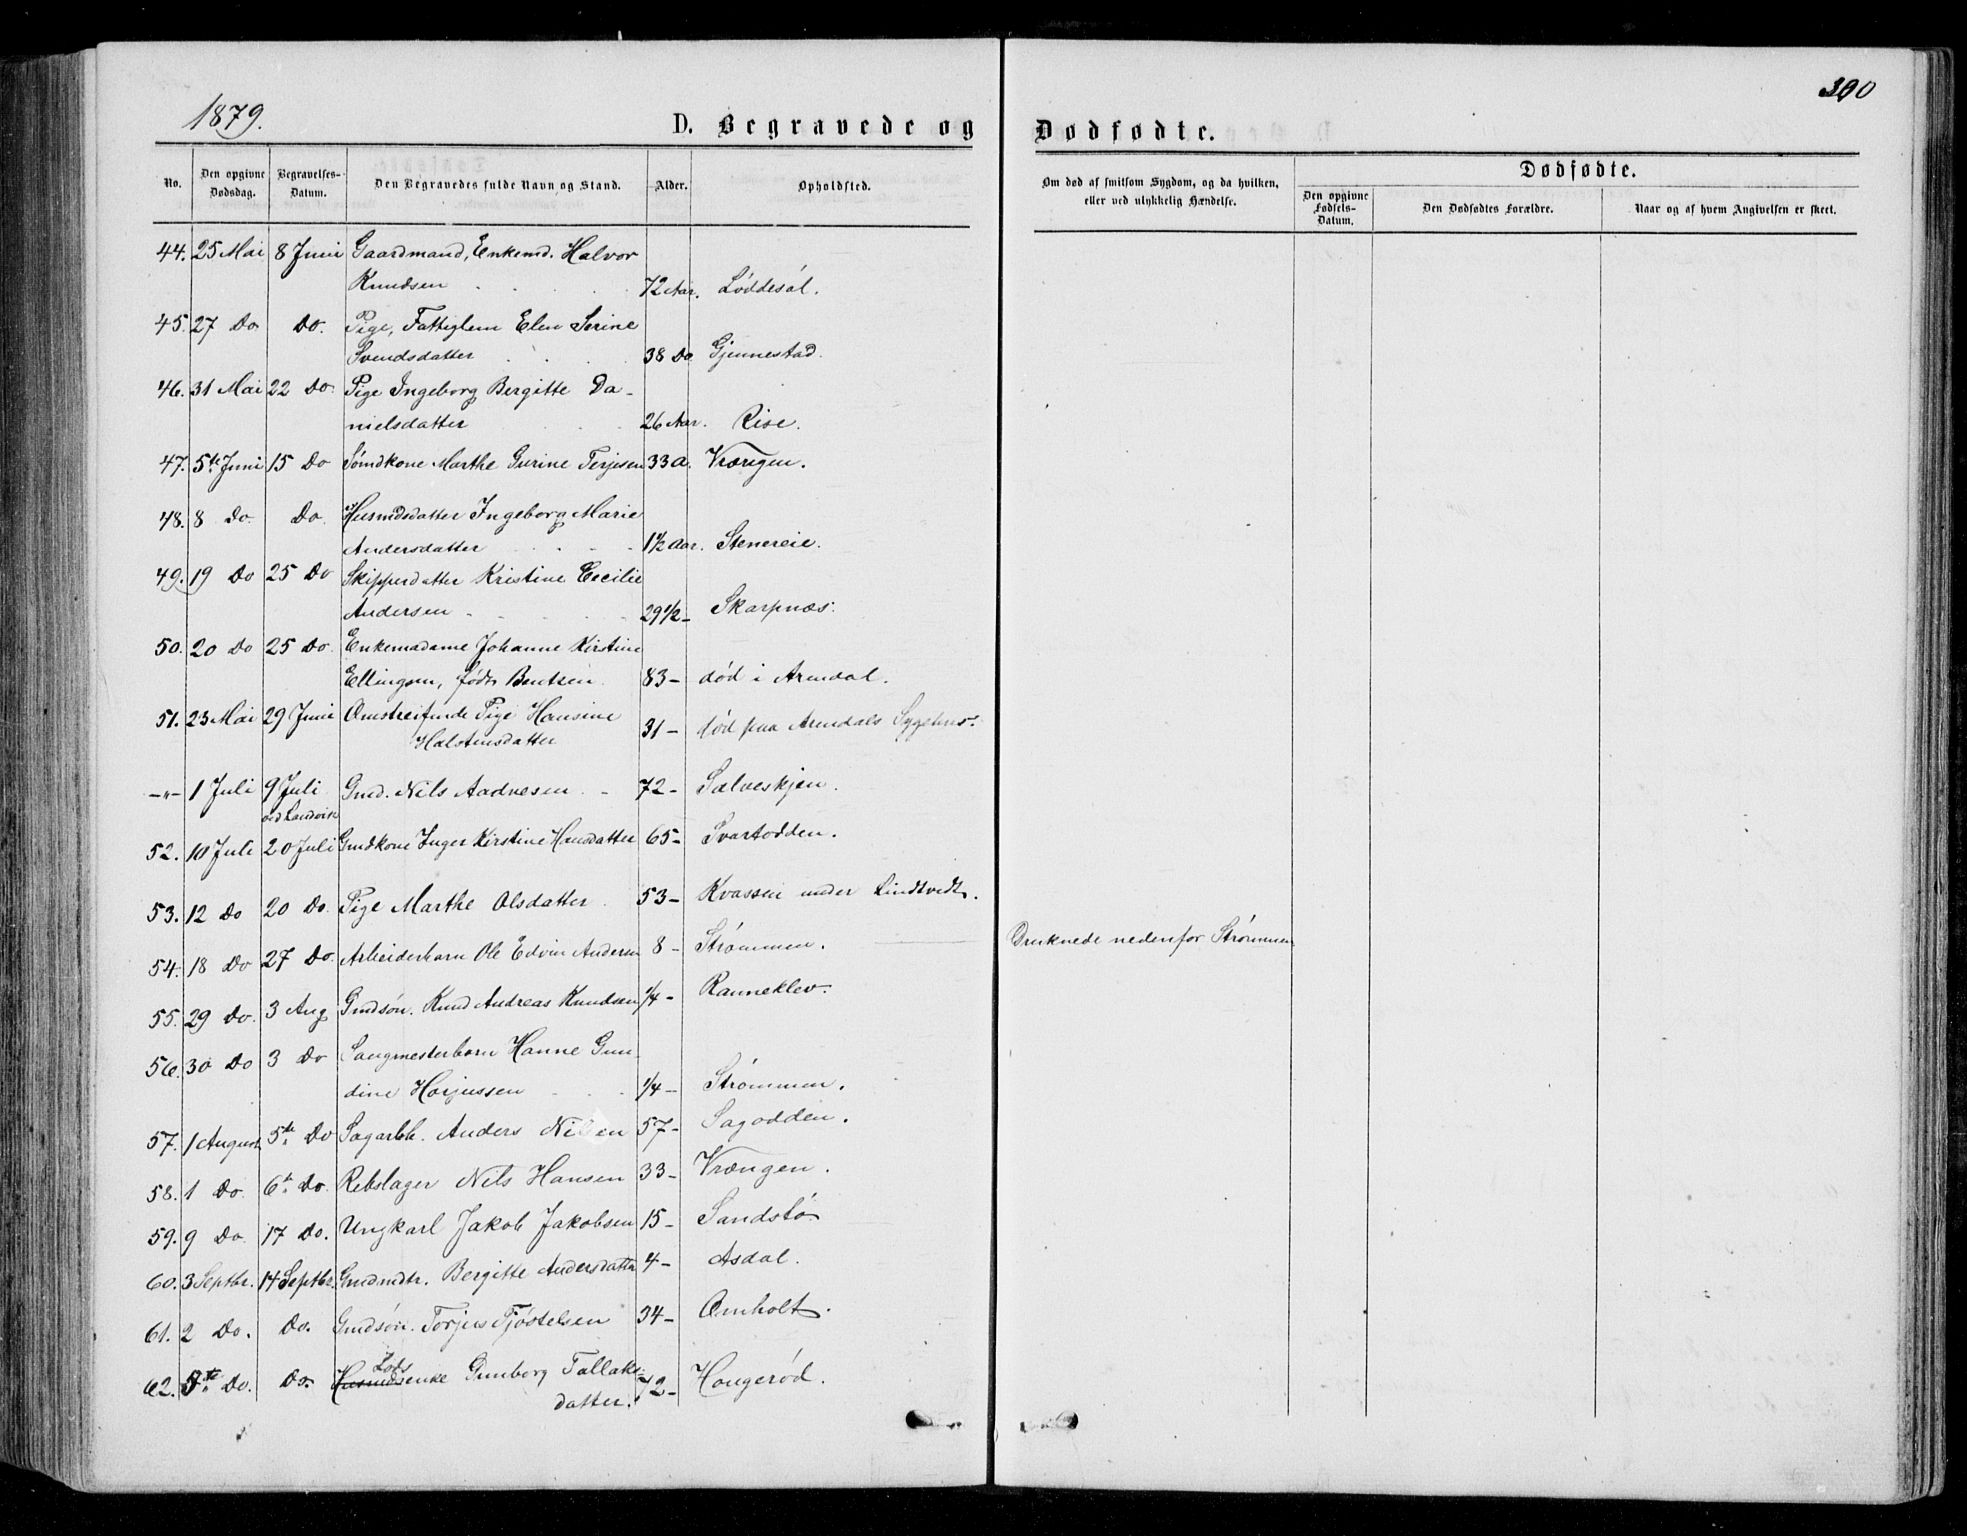 1879.
D. Begravede og
Dødfødte.
300
No.
Den opgivne Dødsdag.
Begravelses-Datum.
Den Begravedes fulde Navn og Stand.
Alder.
Opholdsted.
Om død af smitsom Sygdom, og da hvilken, eller ved ulykkelig Hændelse.
Dødfødte.
Den opgivne Fødsels-Datum.
Den Dødfødtes Forældre.
Naar og af hvem Angivelsen er skeet.
44. 25 Mai 8 Juni Gaardmand, Enkemd. Halvor
Knudsen 72 Aar. Løddesøl.
45. 27 Do Do. Pige, Fattiglem Elen Serine
Svendsdatter 38 Do Gjennestad.
46. 31 Mai 22 Do. Pige Ingeborg Bergitte Da-
nielsdatter 26 Aar. Rise.
47. 5te Juni 15 Do Sømdkone Marthe Gurine Terjesen 33 a. Vrængen.
48. 8 Do Do. Husmdsdatter Ingeborg Marie
Andersdatter 1½ Aar. Stenereie.
49. 19 Do 25 Do Skipperdatter Kristine Cecilie
Andersen 29 1/2 - Skarpnæs.
50. 20 Do 25 Do Enkemadame Johanne Kirstine
Ellingsen, født Bentsen 83 - død i Arendal.
51. 23 Mai 29 Juni Omstreifende Pige Hansine
Halstensdatter 31 - død paa Arendals Sygehus.
-"- 1 Juli 9 Juli Gmd. Nils Aadnesen 72 - Salveskjen.
ved Landvik
52. 10 Juli 20 Juli Gmdkone Inger Kirstine Hansdatter 65 - Svartodden.
53. 12 Do 20 Do. Pige Marthe Olsdatter 53 - Kvassen under Lindtvedt.
54. 18 Do 27 Do. Arbeiderbarn Ole Edvin Andersen 8 - Strømmen. Druknede nedenfor Strømmen
55. 29 Do. 3 Aug Gmdsøn. Knud Andreas Knudsen 1/4 - Ranneklev.
56. 30 Do 3 Do Saugmesterbarn Hanne Gun-
dine Horjussen 1/4 - Strømmen.
57. 1 August 5te Do Sagarbb. Anders Nilsen 57 - Sagodden.
58. 1 Do. 6te Do. Rebslager Nils Hansen 33 - Vrængen.
59. 9 Do 17 Do. Ungkarl Jakob Jakobsen 15 - Sandstø.
60. 3 Septbr. 14 Septbr. Gmdmdtr. Bergitte Andersdatter 4 - Asdal.
61. 2 Do. Do. Gmdsøn. Torjus Tjøstelsen 34 - Omholt.
Lods
62. 5te Do. Do. Husmdsenke Gunborg Tallaks-
datter. 72 - Hougerød.